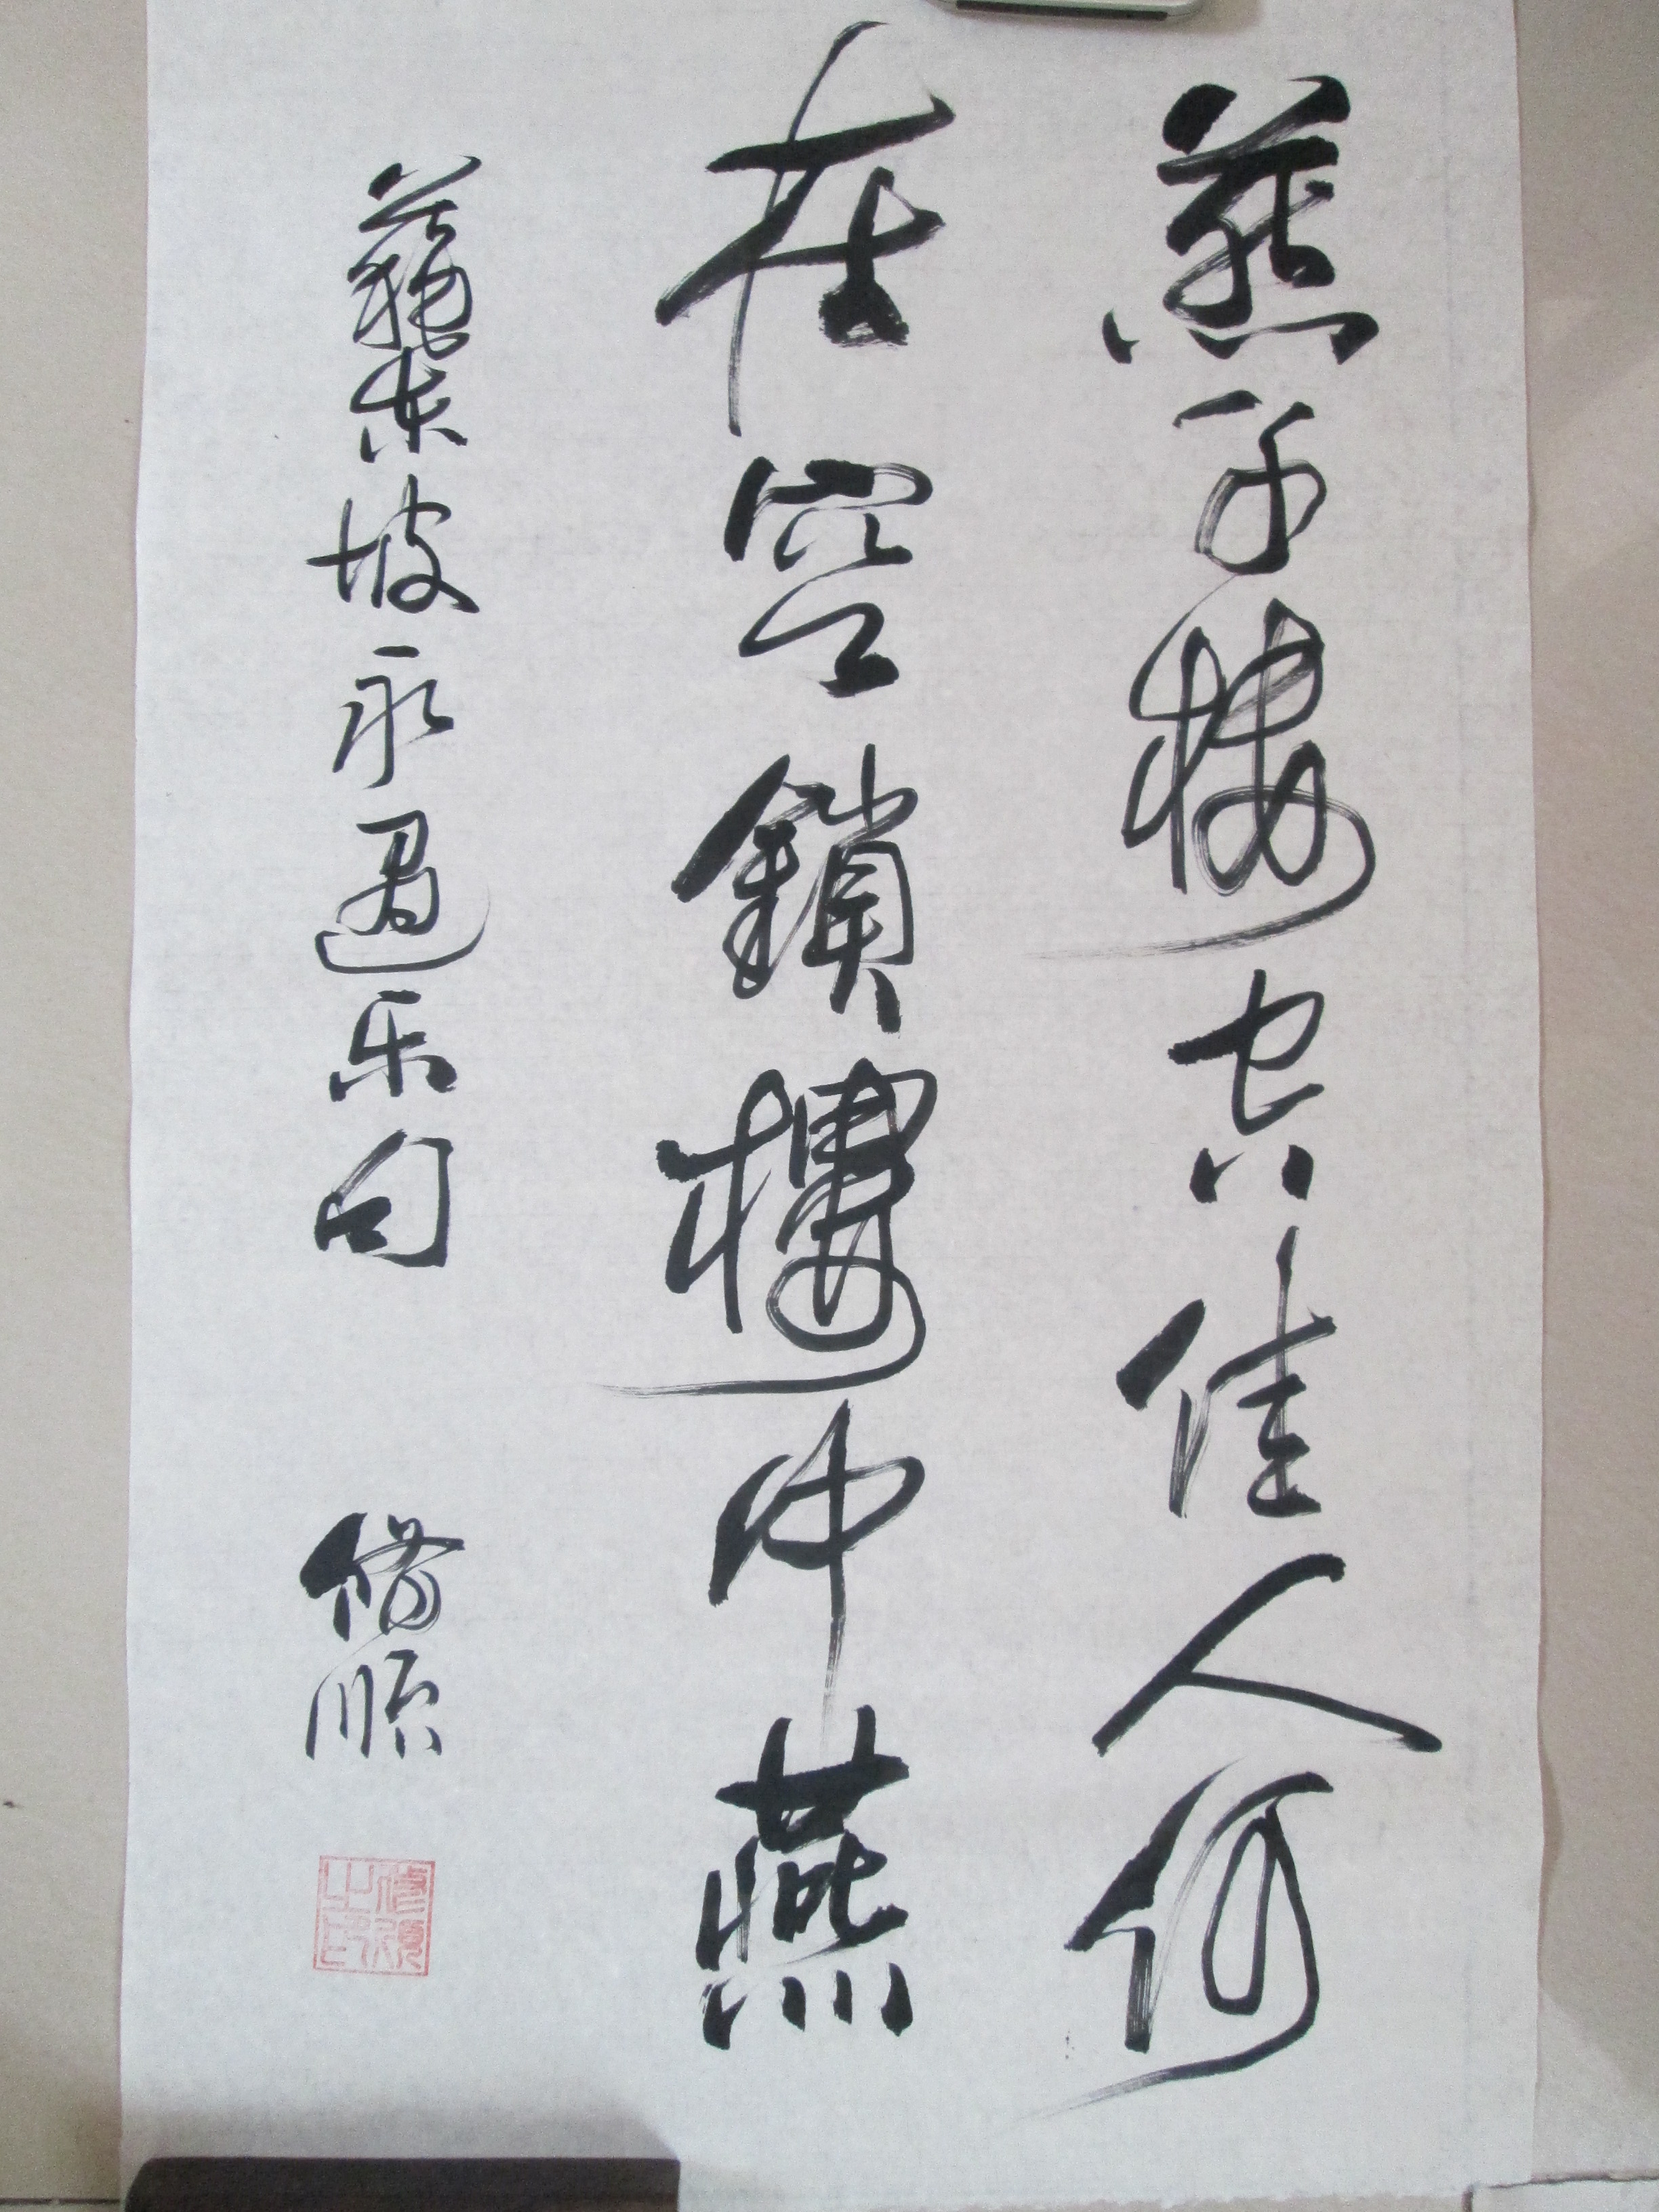 燕子樓空佳人何
在空鎖樓中燕
蘇東坡永遇乐句
修順
修順之印